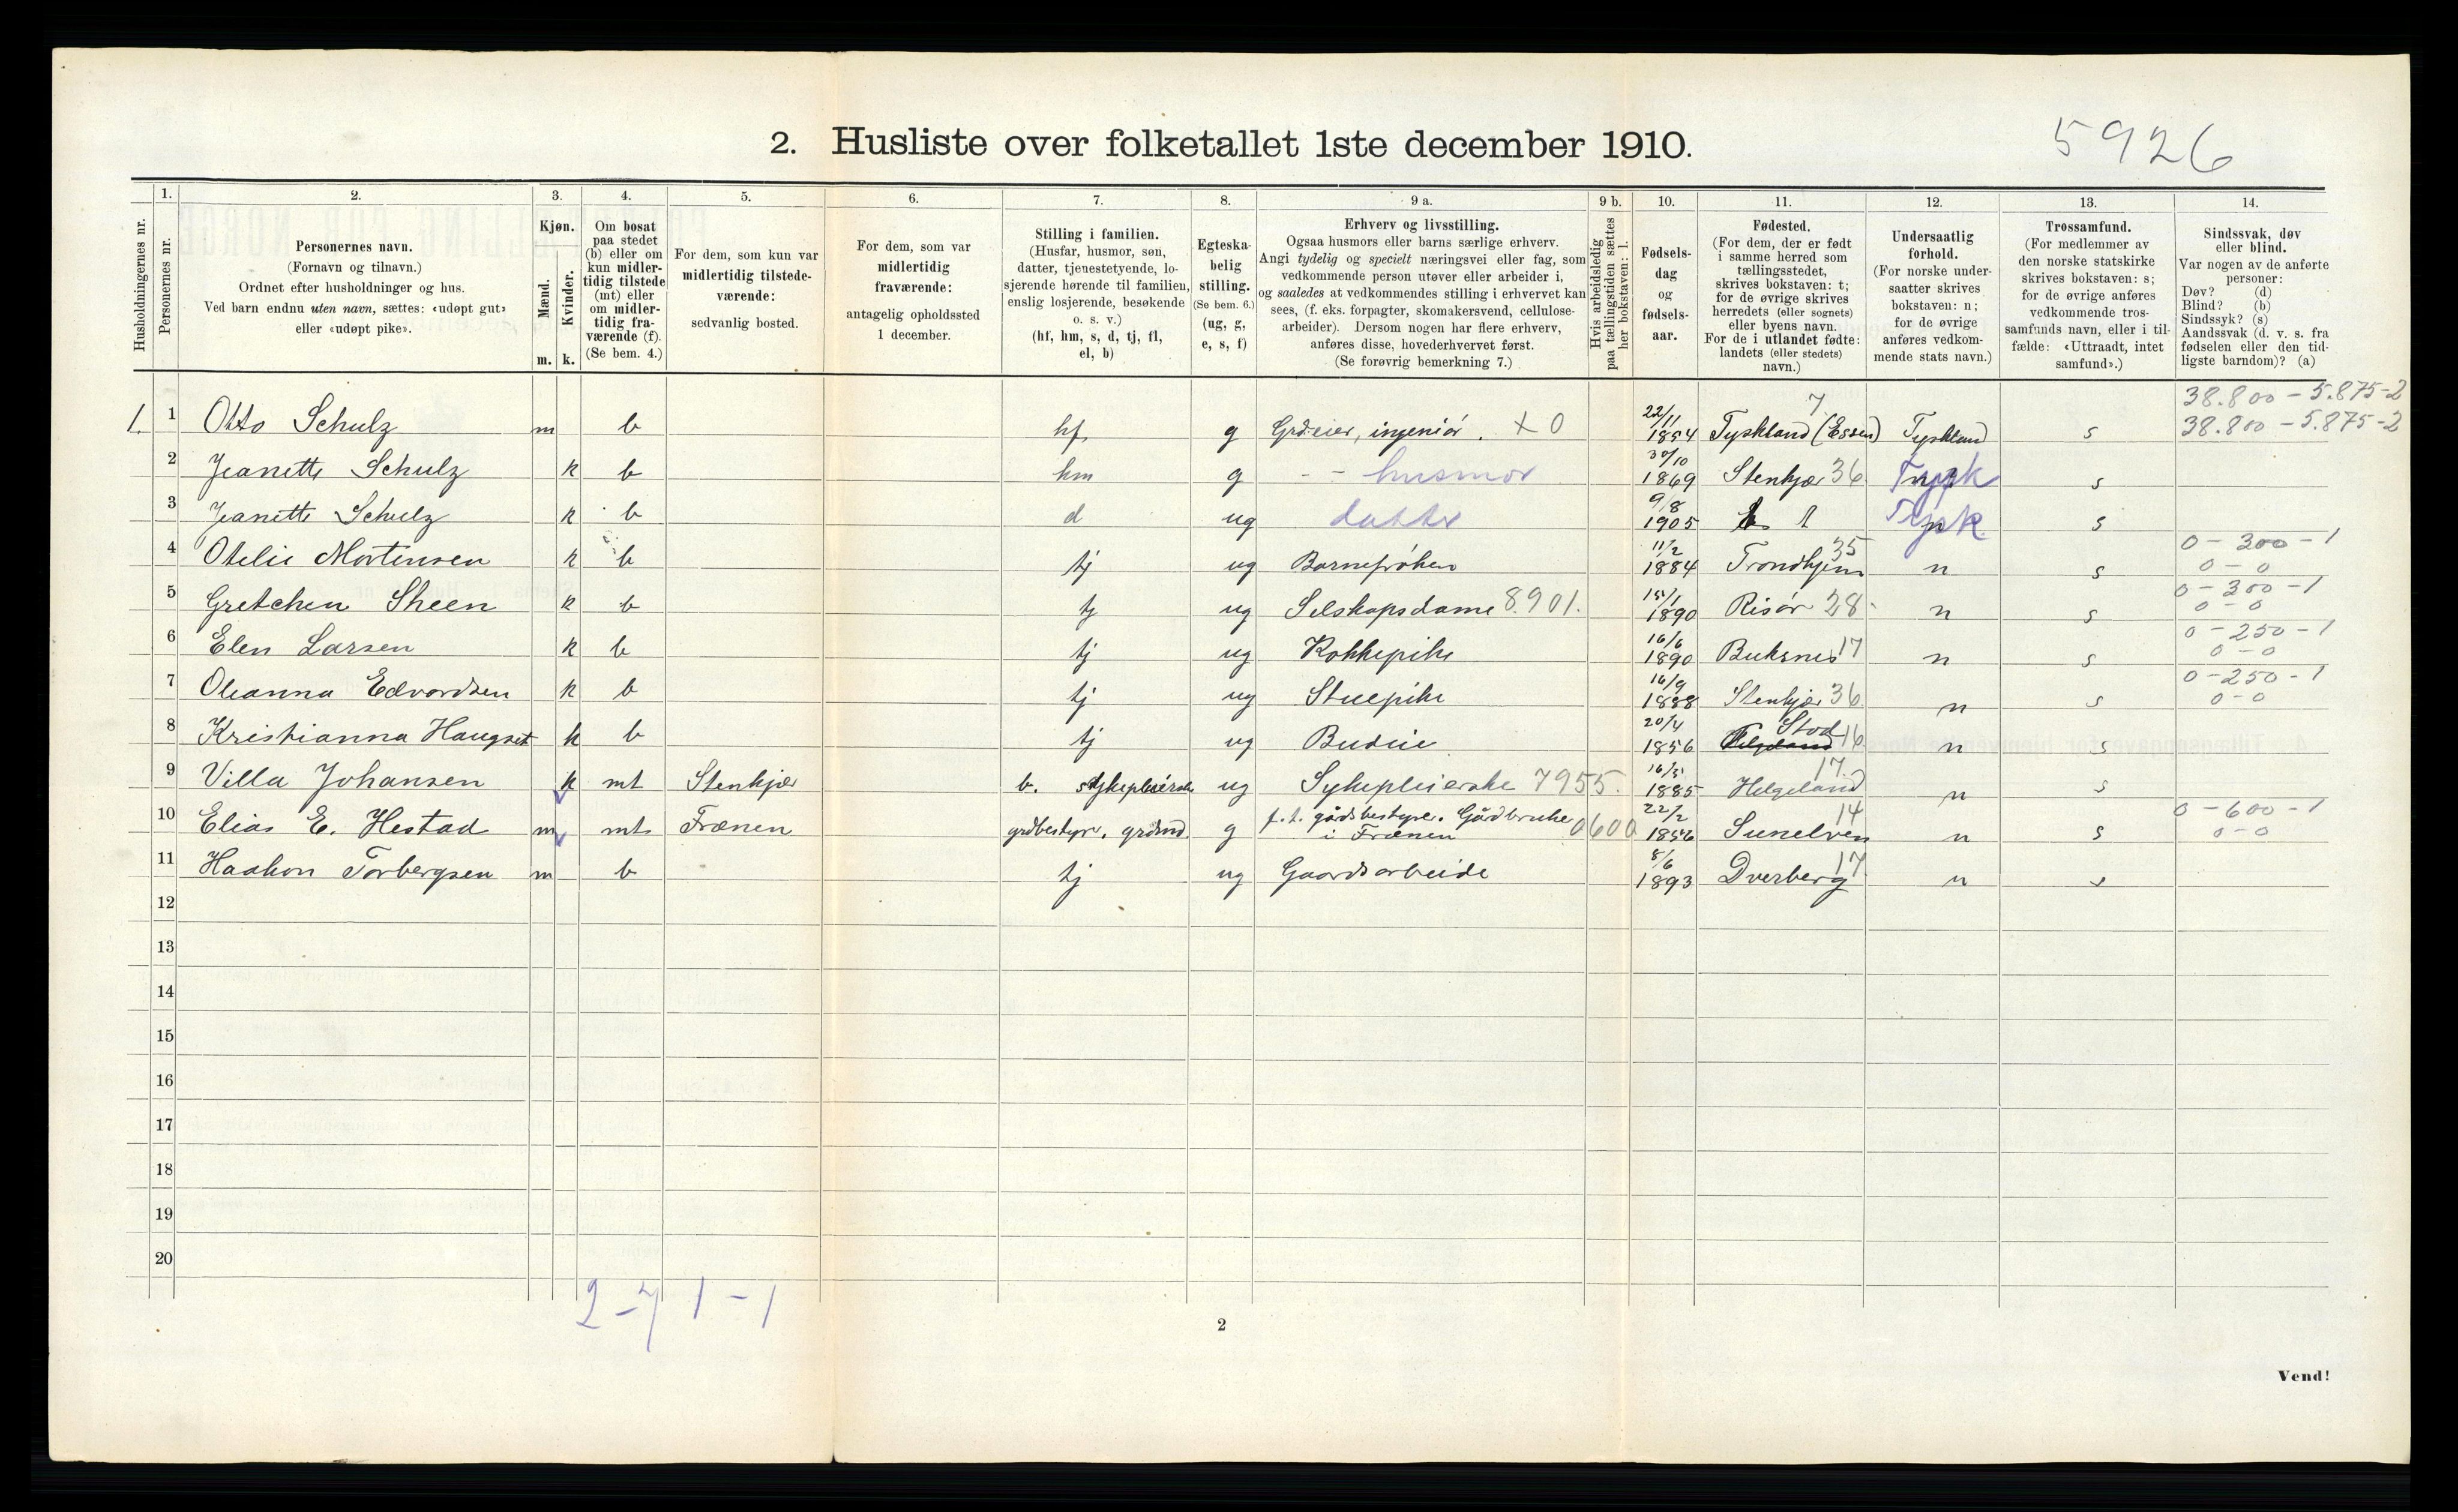 2. Husliste over folketallet 1ste december 1910.
5926
Husholdningernes nr.
1. Personernes nr.
2. Personernes navn.
(Fornavn og tilnavn.)
Ordnet efter husholdninger og hus.
Ved barn endnu uten navn, sættes: «udøpt gut»
eller «udøpt pike».
3. Kjøn.
Mænd. Kvinder.
m. k.
4. Om bosat
paa stedet
(b) eller om
kun midler-
tidig tilstede
(mt) eller
om midler-
tidig fra-
værende (f).
(Se bem. 4.)
5. For dem, som kun var
midlertidig tilstede-
værende:
sedvanlig bosted.
6. For dem, som var
midlertidig
fraværende:
antagelig opholdssted
1 december.
7. Stilling i familien.
(Husfar, husmor, søn,
datter, tjenestetyende, lo-
sjerende hørende til familien,
enslig losjerende, besøkende
o. s. v.)
(hf, hm, s, d, tj, fl,
el, b)
8. Egteska-
belig
stilling.
(Se bem. 6.)
(ug, g,
e, s, f)
9 a. Erhverv og livsstilling.
Ogsaa husmors eller barns særlige erhverv.
Angi tydelig og specielt næringsvei eller fag, som
vedkommende person utøver eller arbeider i,
og saaledes at vedkommendes stilling i erhvervet kan
sees, (f. eks. forpagter, skomakersvend, cellulose-
arbeider). Dersom nogen har flere erhverv,
anføres disse, hovederhvervet først.
(Se forøvrig bemerkning 7.)
9 b. Hvis arbeidsledig
paa tællingstiden sættes
her bokstaven: l.
10. Fødsels-
dag
og
fødsels-
aar.
11. Fødested.
(For dem, der er født
i samme herred som
tællingsstedet,
skrives bokstaven: t;
for de øvrige skrives
herredets (eller sognets)
eller byens navn.
For de i utlandet fødte:
landets (eller stedets)
navn.)
12. Undersaatlig
forhold.
(For norske under-
saatter skrives
bokstaven: n;
for de øvrige
anføres vedkom-
mende stats navn.)
13. Trossamfund.
(For medlemmer av
den norske statskirke
skrives bokstaven: s;
for de øvrige anføres
vedkommende tros-
samfunds navn, eller i til-
fælde: «Uttraadt, intet
samfund».)
14. Sindssvak, døv
eller blind.
Var nogen av de anførte
personer:
Døv? (d)
Blind? (b)
Sindssyk? (s)
Aandssvak (d. v. s. fra
fødselen eller den tid-
ligste barndom)? (a)
38.800 - 5.875-2
1. 1 Otto Schulz m b hf. g Grdeier, ingeniør. X 0 22/11 1854 7 Tyskland (Essen) Tyskland s 38.800 - 5.875-2
2 Jeanette Schulz k b hm g - - husmor 30/10 1869 Stenkjær 36 Tysk s
3 Jeanette Schulz k b d ug datter 9/8 1905 t Tysk s
4 Otelie Mortensen k b tj ug Barnefrøken 11/2 1884 Trondhjem 35 n s 0 - 300 - 1 0 - 0
5 Gretchen Sheen k b tj ug Selskapsdame 8.901. 15/1 1890 Risør 28 n s 0 - 300 - 1 0 - 0
6 Elen Larsen k b tj ug Kokkepike 16/6 1890 Buksnes 17 n s 0 - 250 - 1 0 - 0
7 Oleanna Edvardsen k b tj ug Stuepike 16/9 1888 Stenkjær 36 n s 0 - 250 - 1 0 - 0
8 Kristianna Haugset k b tj ug Budeie 20/4 1856 Helgeland Stod 16 n s
9 Villa Johansen k mt Stenkjær b. sykepleierske ug Sykepleierske 7955. 16/5 1885 Helgeland 17 n s
10 Elias E. Hestad m mt Frænen grdbestyr. grdmd. g f. t. gårdsbestyrer. Gårdbruker i Frænen 0600 22/2 1856 Sunelven 14 n s 0 - 600 - 1 0 - 0
11 Haakon Torbergsen m b tj ug Gaardsarbeide 5/6 1893 Dverberg 17 n s
12
13
14
15
16
17
18
19
20
2-7 1-1
2
Vend!